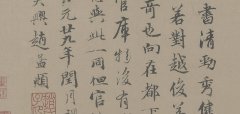 書清勁秀健
若對越俊
奇也向在都
官庫 後有
與此一同但官
元廿九年閏月
興趙孟頫